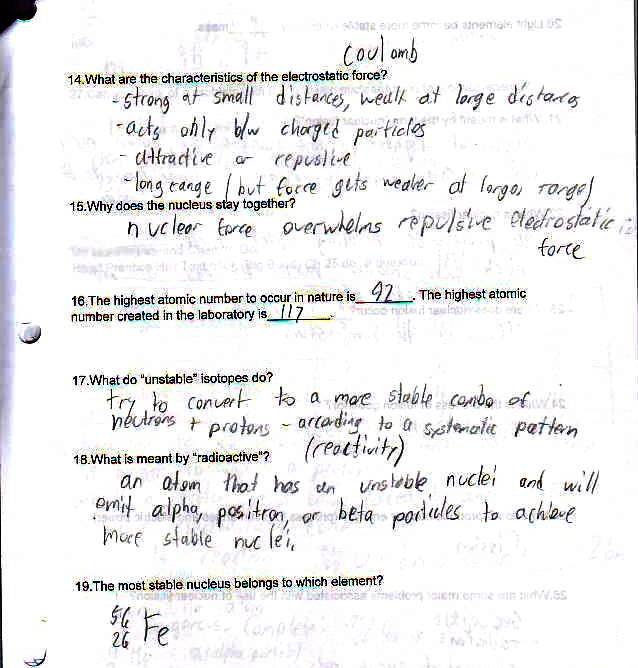 Coulomb
14.What are the characteristics of the electrostatic force?
- strong at small distances, weak at large distances
- acts only b/w charged particles
- attractive or repuslive
- long range (but force gets weaker at larger range)
15.Why does the nucleus stay together?
nuclear force overwhelms repulsive electrostatic
force
16.The highest atomic number to occur in nature is 92 . The highest atomic
number created in the laboratory is 117 .
17.What do "unstable" isotopes do?
try to convert to a more stable combo of
neutrons + protons - according to a systematic pattern
(reactivity)
18.What is meant by "radioactive"?
an atom that has an unstable nuclei and will
emit alpha, positron, or beta particles to achieve
more stable nuclei.
19.The most stable nucleus belongs to which element?
56
26 Fe